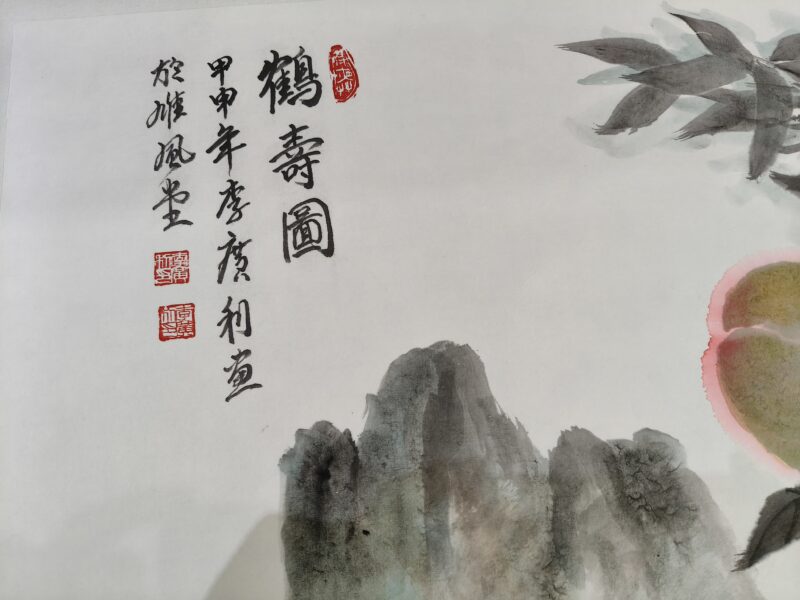 鶴壽圖
甲申年李廣利画
於雄風堂